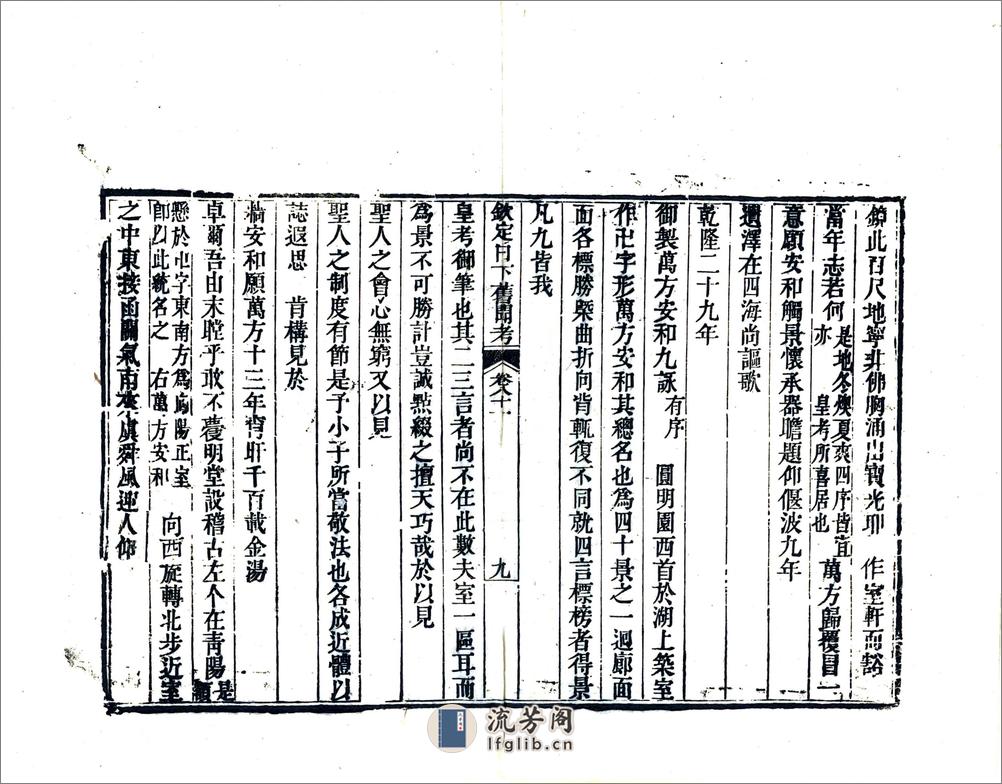 鏡此百尺地寧非佛胸涌出寶光耶　作室軒而豁
當年志若何是地冬燠夏爽四序皆宜亦　皇考所喜居也　萬方歸覆冒一
意願安和觸景懷承器瞻題仰偃波九年
遺澤在四海尚謳歌
乾隆二十九年
御製萬方安和九詠有序　圓明園西首於湖上築室
作卍字形萬方安和其總名也爲四十景之一迴廊面
面各標勝槩曲折向背輒復不同就四言標榜者得景
凡九皆我
欽定日下舊聞考　卷八十一　九
皇考御筆也其二三言者尚不在此數夫室一區耳而
爲景不可勝計豈誠點綴之擅天巧哉於以見
聖人之會心無窮又以見
聖人之制度有節是予小子所當敬法也各成近體以
誌遐思　肯構見於
牆安和願萬方十三年宵旰千百載金湯
卓爾吾由末瞠乎敢不蘉明堂設稽古左个在靑陽是額
懸於卍字東南方爲向陽正室卽以此統名之　右萬方安和　向西旋轉北步近室
之中東接函關氣南來虞舜風連人仰
流芳阁
lfglib.cn